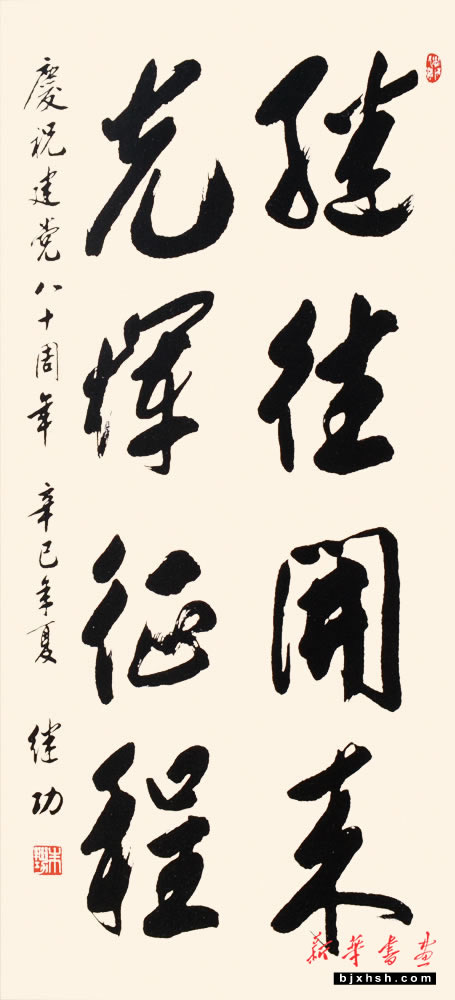 继往開来
光辉征程
慶祝建党八十周年 辛巳年夏 继功
新華書画
bjxhsh.com